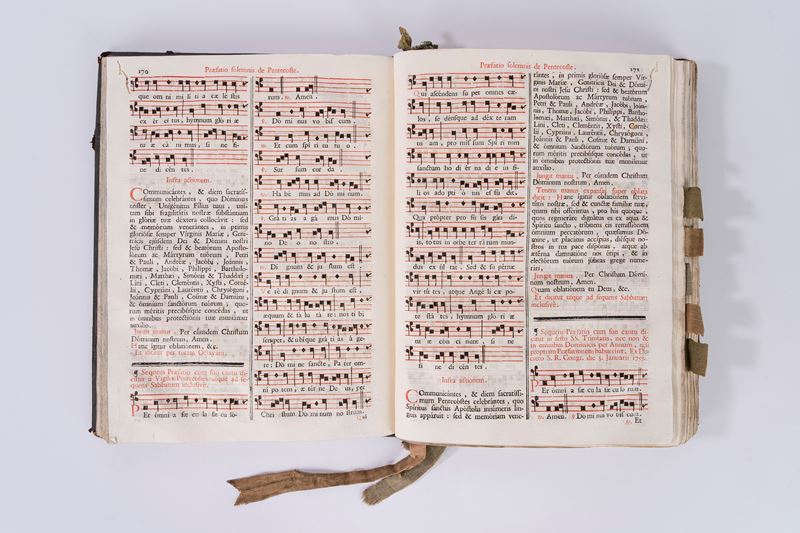 170
Præfatio solemnis de Pentecoste.
que om ni mi li ti a cæ le stis
ex er ci tus, hymnum glo ri æ
tu æ cá ni mus, si ne fi-
ne di cen tes.
Infra actionem.
COmmunicántes, & diem sacratís-
simum celebrántes, quo Dóminus
noster, Unigénitus Fílius tuus, uní-
tam sibi fragilitátis nostræ substántiam
in glóriæ tuæ déxtera collocávit: sed
& memóriam venerántes, in primis
gloriósæ semper Vírginis Maríæ, Geni-
trícis ejúsdem Dei & Dómini nostri
Jesu Christi: sed & beatórum Apósto-
lórum ac Mártyrum tuórum, Petri
& Pauli, Andréæ, Jacóbi, Joánnis,
Thomæ, Jacóbi, Philíppi, Bartholo-
mǽi, Matthǽi, Simónis, & Thaddǽi:
Lini, Cleti, Cleméntis, Xysti, Corné-
lii, Cypriáni, Lauréntii, Chrysógoni,
Joánnis & Pauli, Cosmæ & Damiáni,
& ómnium sanctórum tuórum; quo-
rum méritis precibúsque concédas, ut
in ómnibus protectiónis tuæ muniámur
auxílio.
Jungit manus. Per eúmdem Christum
Dóminum nostrum, Amen.
Hanc ígitur oblatiónem, &c.
Et dicitur per totam Octavam.
¶ Sequens Præfatio cum suo cantu di-
citur a Vigilia Pentecostes usque ad se-
quens Sabbatum inclusive.
PEr omni a sæ cu la sæ cu ló-
rum. ℟. Amen.
℣. Dó mi nus vo bís cum.
℟. Et cum spí ri tu tu o.
℣. Sur sum cor da.
℟. Ha bé mus ad Dó mi num.
℣. Grá ti as a gá mus Dó mi-
no De o no stro.
℟. Di gnum & ju stum est.
VE re di gnum & ju stum est,
æquum & sa lu tá re: nos ti bi
semper, & ubíque grá ti as á ge-
re: Dó mi ne sancte, Pa ter om-
ni po tens, æ tér ne De us, per
Chri stum Dó mi num no strum.
Præfatio solemnis de Pentecoste.
171
Qui ascéndens su per omnes cæ-
los, se dénsque ad déx te ram
tu am, pro mís sum Spí ri tum
sanctum ho di ér na di e in fí-
li os ado pti ó nis ef fú dit.
Quaprópter pro fú sis gáu di-
is, to tus in orbe ter rá rum mun-
dus ex súl tat. Sed & su pérnæ
vir tú tes, atque Angé li cæ po-
te stá tes, hymnum gló ri æ
tu æ cón ci nunt, si ne
fi ne di cén tes.
Infra actionem.
COmmunicántes, & diem sacratíssi-
mum Pentecóstes celebrántes, quo
Spíritus sanctus Apóstolis innúmeris lin-
guis appáruit: sed & memóriam vene-
rántes, in primis gloriósæ semper Vír-
ginis Maríæ, Genitrícis Dei & Dómi-
ni nostri Jesu Christi: sed & beatórum
Apostolórum ac Mártyrum tuórum,
Petri & Pauli, Andréæ, Jacóbi, Joán-
nis, Thomæ, Jacóbi, Philíppi, Barth-
lomǽi, Matthǽi, Simónis, & Thaddǽi:
Lini, Cleti, Cleméntis, Xysti, Corné-
lii, Cypriáni, Lauréntii, Chrysógoni,
Joánnis & Pauli, Cosmæ & Damiáni,
& ómnium Sanctórum tuórum; quo-
rum méritis precibúsque concédas, ut
in ómnibus protectiónis tuæ muniámur
auxílio.
Jungit manus. Per eúmdem Christum
Dóminum nostrum, Amen.
Tenens manus expansas super oblata
dicit: Hanc ígitur oblatiónem servi-
tútis nostræ, sed & cunctæ famíliæ tuæ,
quam tibi offérimus, pro his quoque,
quos regeneráre dignátus es ex aqua &
Spíritu sancto, tríbuens eis remissiónem
ómnium peccatórum, quǽsumus Dó-
mine, ut placátus accípias, diésque no-
stros in tua pace dispónas, atque ab
ætérna damnatióne nos éripi, & in
electórum tuórum júbeas grege nume-
rári.
Jungit manus. Per Christum Dómi-
num nostrum, Amen.
Quam oblatiónem tu Deus, &c.
Et dicitur usque ad sequens Sabbatum
inclusive.
¶ Sequens Præfatio cum suo cantu di-
citur in festo SS. Trinitatis, nec non &
in omnibus Dominicis per Annum, quæ
propriam Præfationem habuerint. Ex De-
creto S. R. Congr. die 3. Januarii 1759.
PEr omni a sæ cu la sæ cu ló rum.
℟. Amen. ℣. Dó mi nus vo bís cum.
℟. Et